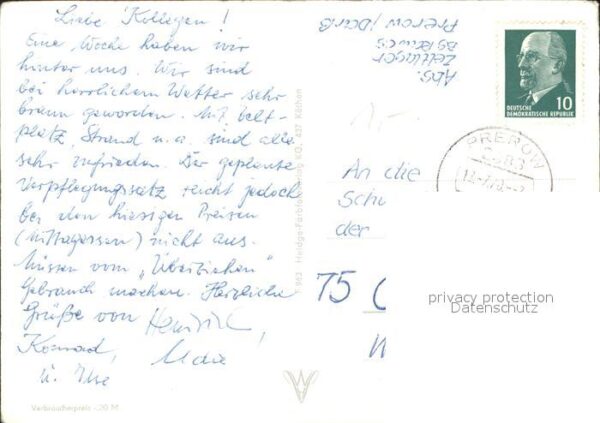 Liebe Kollegen!
Eine Woche haben wir
hinter uns. Wir sind
bei herrlichem Wetter sehr
braun geworden. Mit Zelt-
platz, Strand u.a. sind alle
sehr zufrieden. Der geplante
Verpflegungssatz reicht jedoch
bei den hiesigen Preisen
(Mittagessen) nicht aus.
Müssen vom „Überziehen"
Gebrauch machen. Herzliche
Grüße von
Konrad,
u.
Verbraucherpreis -,20 M
Abs.
Zeltlager
Prerow / Darß
DEUTSCHE
DEMOKRATISCHE REPUBLIK
10
PREROW
An die
Schu
der
75
privacy protection
Datenschutz